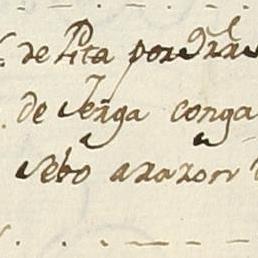 de Pita por
de Jerga conga
sebo a razon